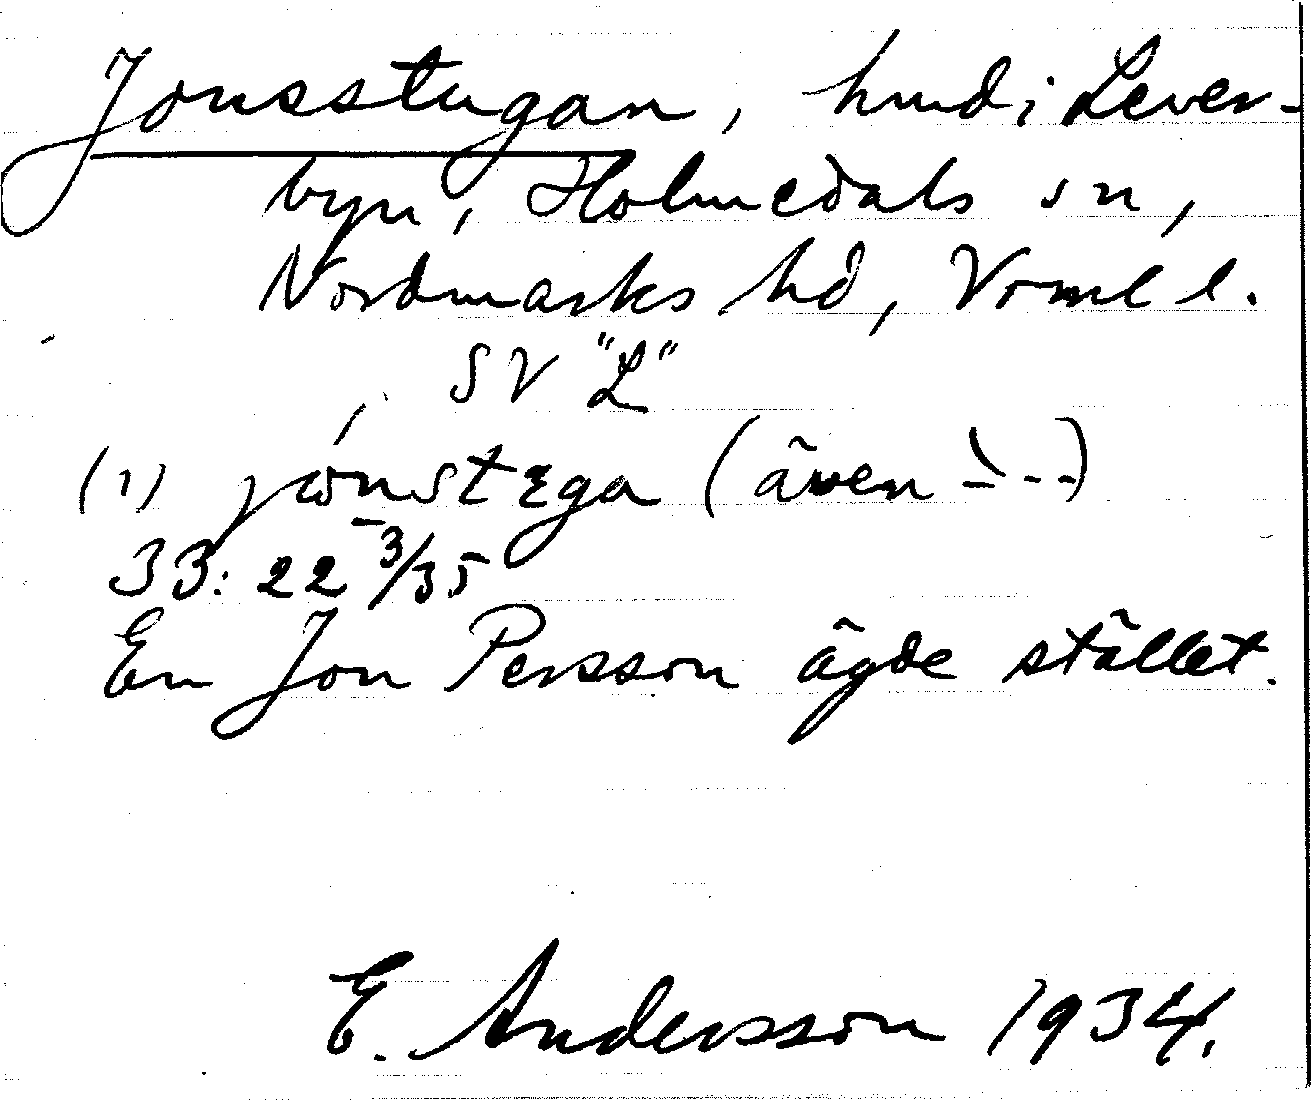 Jonsstugan, hmd i Lever-
byn, Holmedals sn,
Nordmarks hd, Vrml l.
SV "L"
(1) (även
33: 22 3/35
En Jon Persson ägde stället.
E. Andersson 1934.